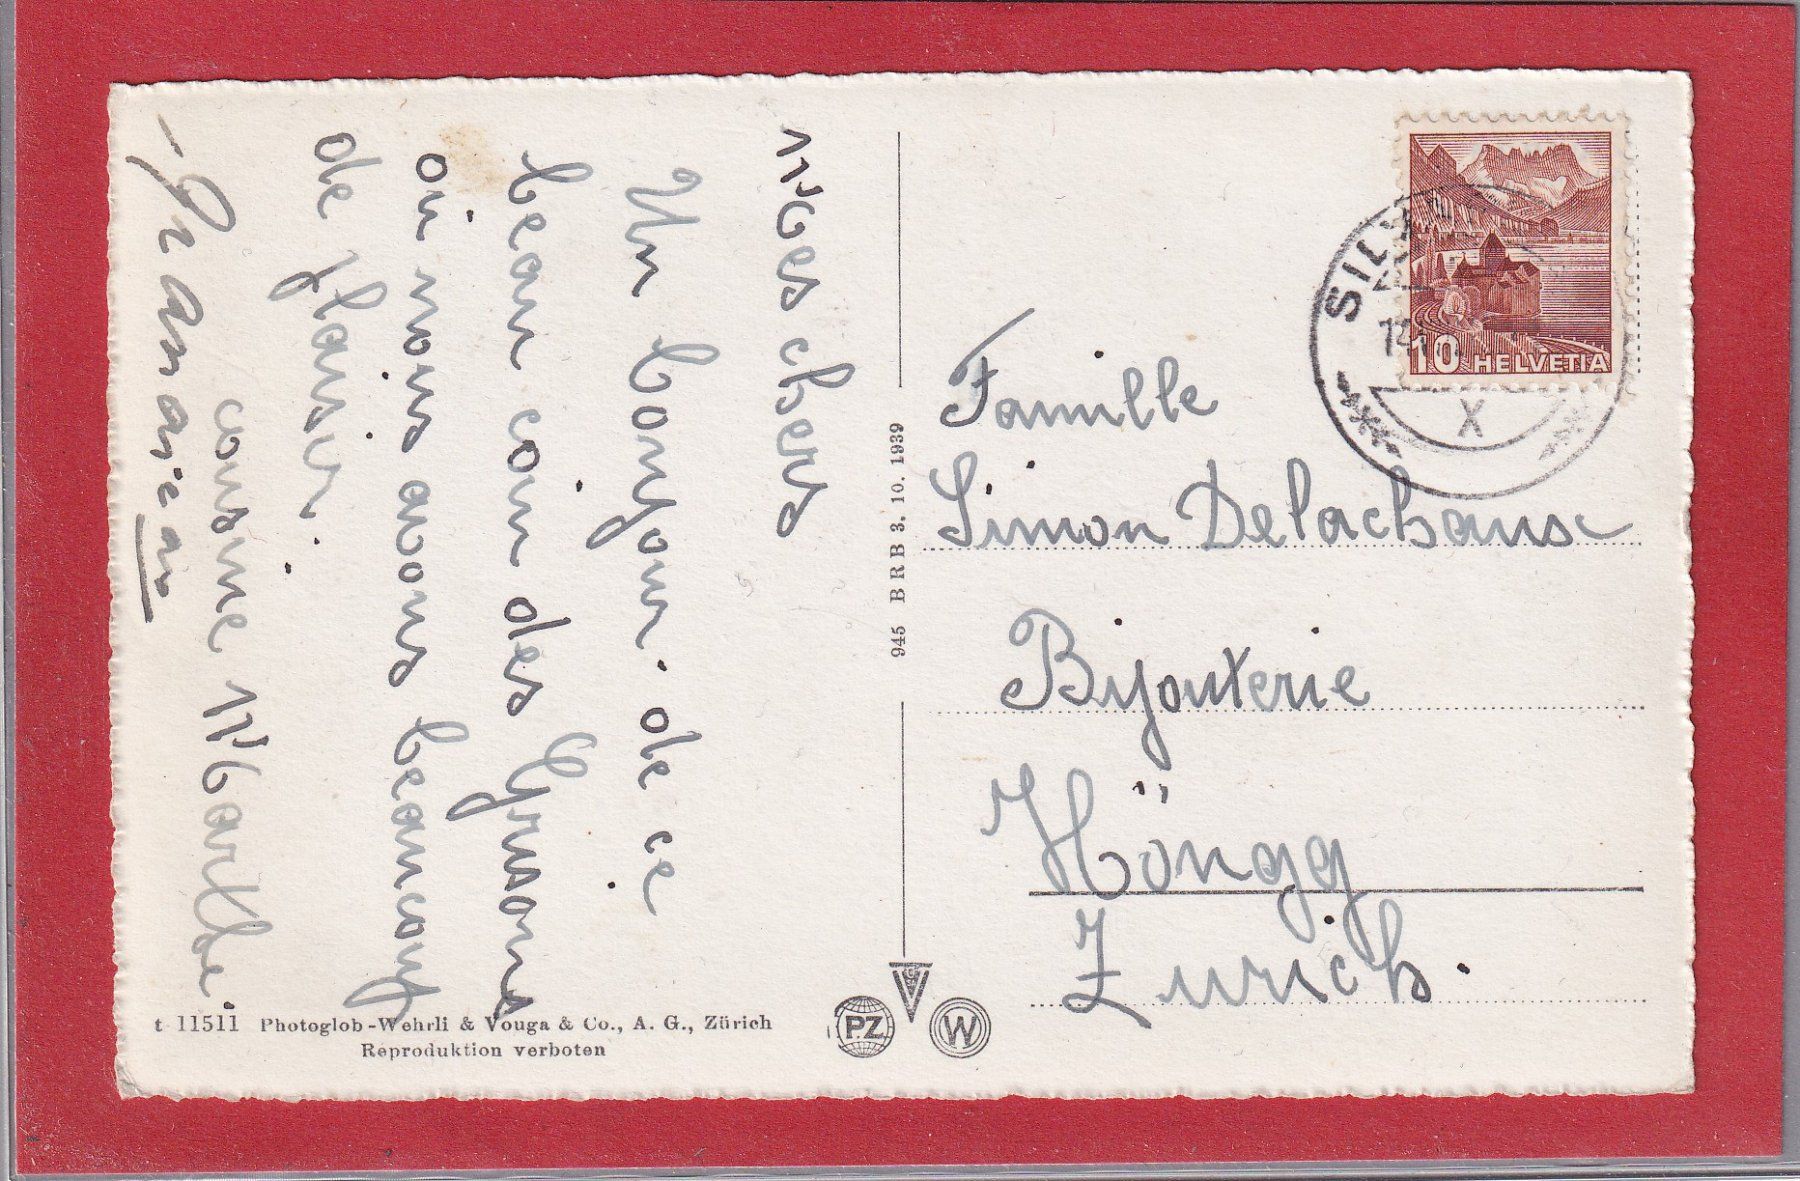 Mes chers
Un bonjour de ce
beau coin des Grisons
où nous avons beaucoup
de plaisir.
cousine Marthe.
945 BRB 3. 10. 1939
Famille
Simon Delachaux
Bijouterie
Höngg
Zurich.
SIL
14
X
10 HELVETIA
t 11511 Photoglob-Wehrli & Vouga & Co., A. G., Zürich
Reproduktion verboten
PZ
W